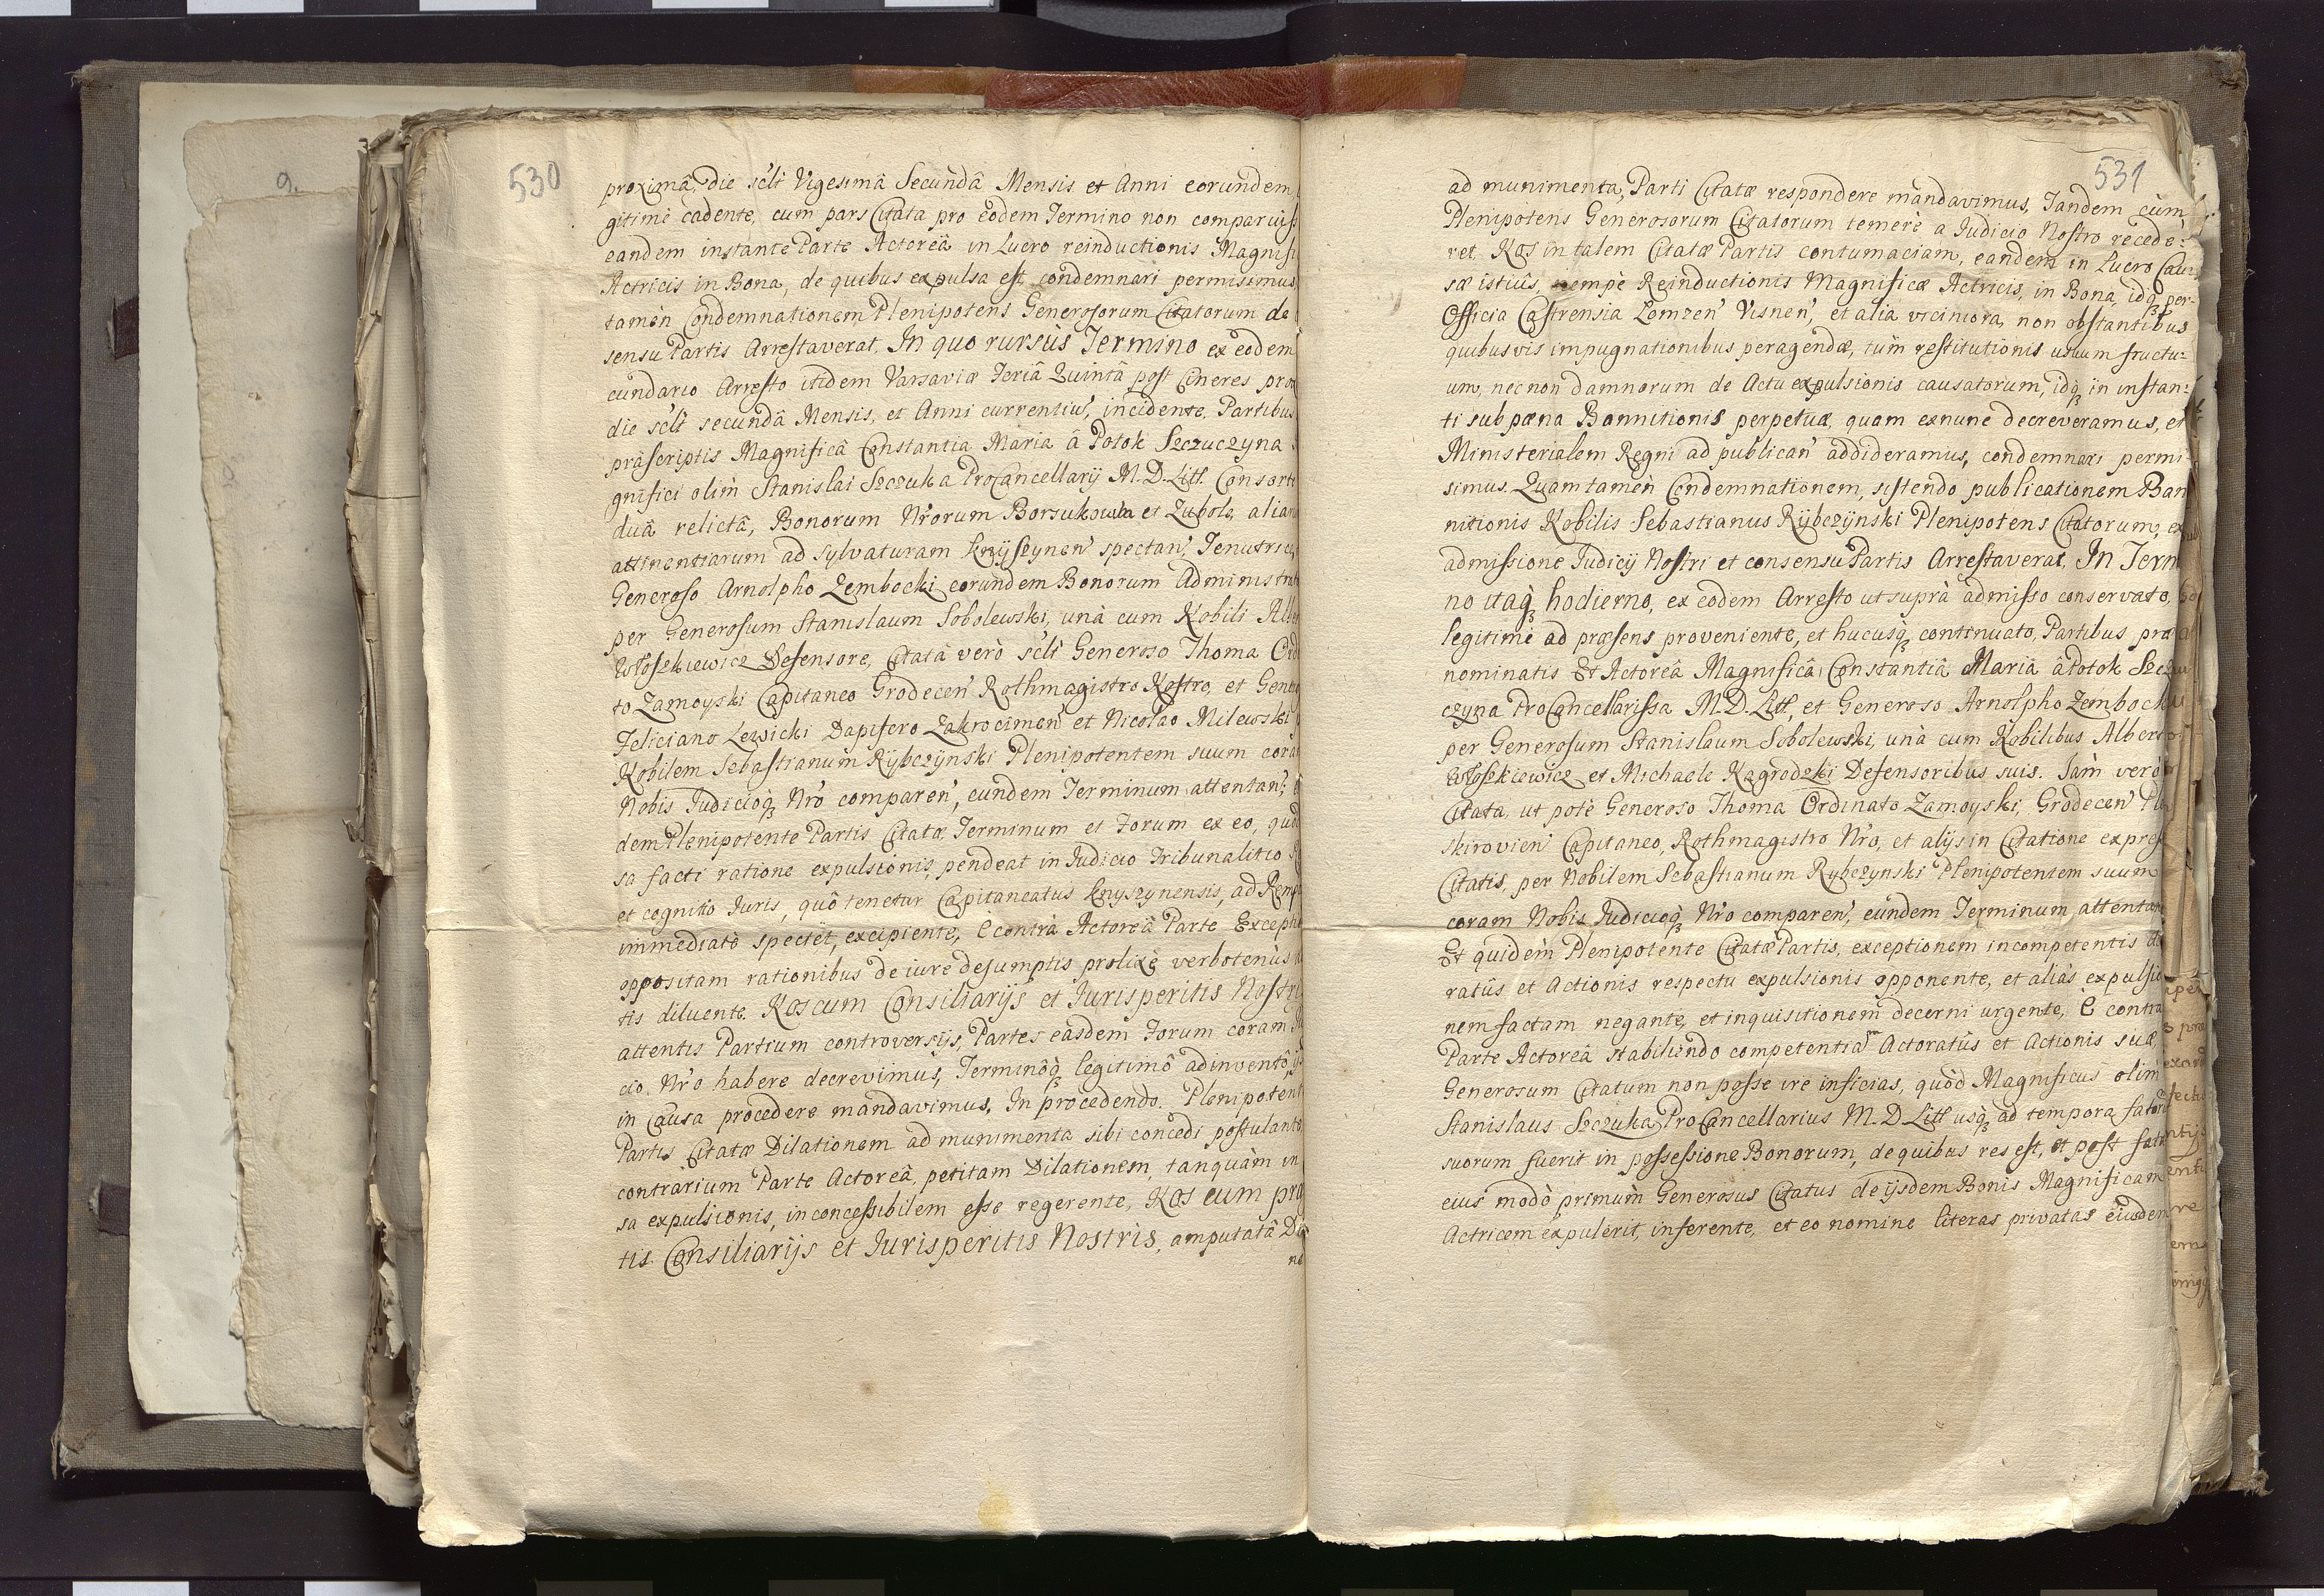 9.
530
proximâ, die sc̃lt Vigesimâ Secundâ Mensis et Anni eorundem
gitimè cadente, cum pars Citata pro eôdem Termino non comparuiss
eandem instante Parte Actoreâ in Lucro reinductionis Magnifi
Actricis in Bona, de quibus expulsa est, condemnari permisimus
tamèn Condemnationem Plenipotens Generosorum Citatorum de
sensu Partis Arrestaverat. In quo rursùs Termino ex eodem
cundario Arresto itidem Varsaviæ Feriâ Quintâ post Cineres prox
die sc̃lt secundâ Mensis, et Anni currentiu', incidente, Partibus
præscriptis Magnificâ Constantia Maria â Potok Szczuczyna
gnifici olìm Stanislai Szczuka ProCancellarij M. D. Litt. Consorte
duâ relictâ, Bonorum Nrorum Borsukowka et Zubole, aliarum
attinentiarum ad sylvaturam Knyszynen' spectan', Tenutrice,
Generoso Arnolpho Zembocki eorundem Bonorum Administrato
per Generosum Stanislaum Sobolewski, unà cum Nobili Alber
Wloszkiewicz Defensore, Citatâ verò sc̃lt Generoso Thoma Ord
to Zamoyski Capitaneo Grodecen' Rothmagistro Nostro, et Gene
Feliciano Lewicki Dapifero Zakrocimen' et Nicolao Milewski
Nobilem Sebastianum Rybczynski Plenipotentem suum cora
Nobis Judicioq₃ Nrõ comparen', eundem Terminum attentan';
dem Plenipotente Partis Citatæ Terminum et Forum ex eo, quod
sa facti ratione expulsionis, pendeat in Judicio Tribunalitio
et cognitio Juris, quô tenetur Capitaneatus Knyszynensis, ad Remp
immediatè spectet, excipiente, È contrà Actoreâ Parte Excepti
oppositam rationibus de iure desumptis prolixè verbotenùs
tis diluente. Nos cum Consiliarijs et Jurisperitis Nostri
attentis Partium controversijs, Partes easdem Forum coram
cio Nrõ habere decrevimus, Terminôq₃ legitimô adinventô,
in Causa procedere mandavimus. In procedendo Plenipotent
Partis Citatæ Dilationem ad munimenta sibi concedi postulante,
contrarium Parte Actoreâ, petitam Dilationem, tanquàm in
sa expulsionis, inconcessibilem esse regerente, Nos cum præ
tis Consiliarijs et Jurisperitis Nostris, amputatâ Di
ne
531
ad munimenta, Parti Citatæ respondere mandavimus, Tandem cùm
Plenipotens Generosorum Citatorum temerè a Judicio Nostro recede:
ret. Nos in talem Citatæ Partis contumaciam, eandem in Lucro Cau:
sæ istiùs, nempè Reinductionis Magnificæ Actricis, in Bona, idq₃ per:
Officia Castrensia Lomzen' Visnen', et alia viciniora, non obstantibus
quibusvis impugnationibus peragendæ, tùm restitutionis usuum fructu:
um, nec non damnorum de Actu expulsionis causatorum, idq₃ in instan:
ti sub pæna Bannitionis perpetuæ, quam exnunc decreveramus, et
Ministerialem Regni ad publican' addideramus, condemnari permi
simus. Quam tamèn Condemnationem, sistendo publicationem Ban
nitionis Nobilis Sebastianus Rybczynski Plenipotens Citatorum, ex
admissione Judicij Nostri et consensu Partis Arrestaverat. In Term
no itaq₃ hodierno, ex eodem Arresto ut suprà admisso conservato,
legitimè ad præsens proveniente, et hucusq₃ continuato, Partibus præ
nominatis Et Actoreâ Magnificâ Constantiâ Mariâ â Potok Szczu
czyna ProCancellarissa M. D. Litt, et Generoso Arnolpho Zembocki
per Generosum Stanislaum Sobolewski, unà cum Nobilibus Alberto
Wloszkiewicz et Michaele Nagrodzki Defensoribus suis. Jàm verò
Citata, ut potè Generoso Thoma Ordinato Zamoyski, Grodecen' Plo
skirovien' Capitaneo, Rothmagistro Nrõ, et alijs in Citatione expres
Citatis, per Nobilem Sebastianum Rybczynski Plenipotentem suum
coram Nobis Judicioq₃ Nrõ comparen', eundem Terminum attentan
Et quidèm Plenipotente Citatæ Partis, exceptionem incompetentis
ratùs et Actionis respectu expulsionis opponente, et aliàs expulsio
nem factam negante, et inquisitionem decerni urgente, È contra
Parte Actoreâ stabiliendo competentiam Actoratùs et Actionis suæ
Generosum Citatum non posse ire inficias, quòd Magnificus olim
Stanislaus Szczuka ProCancellarius M. D. Litt usq₃ ad tempora fator
suorum fuerit in possessione Bonorum, de quibus res est, et post fata
eius modò primùm Generosus Citatus de ijsdem Bonis Magnificam
Actricem expulerit, inferente, et eo nomine literas privatas eiusdem